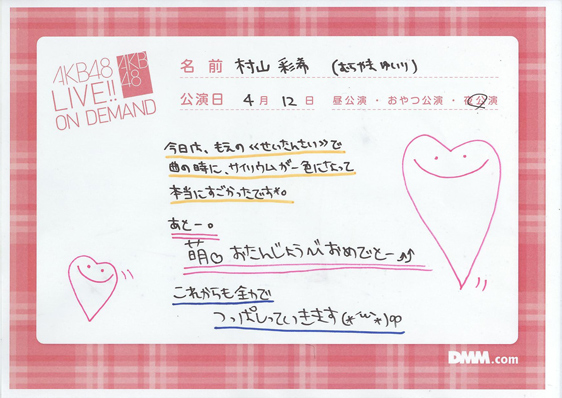 AKB48
LIVE!!
ON DEMAND
AKB
48
名前 村山 彩希 (むらやま ゆいり)
公演日 4月 12日 昼公演・おやつ公演・夜公演
今日は、もえの《せいたんさい》で
曲の時に、サイリウムが一色になって
本当にすごかったですね。
あとー。
萌♡ おたんじょうび おめでとー♪
これからも全力で
つっぱしっていきます(*´ω`*)
DMM.com